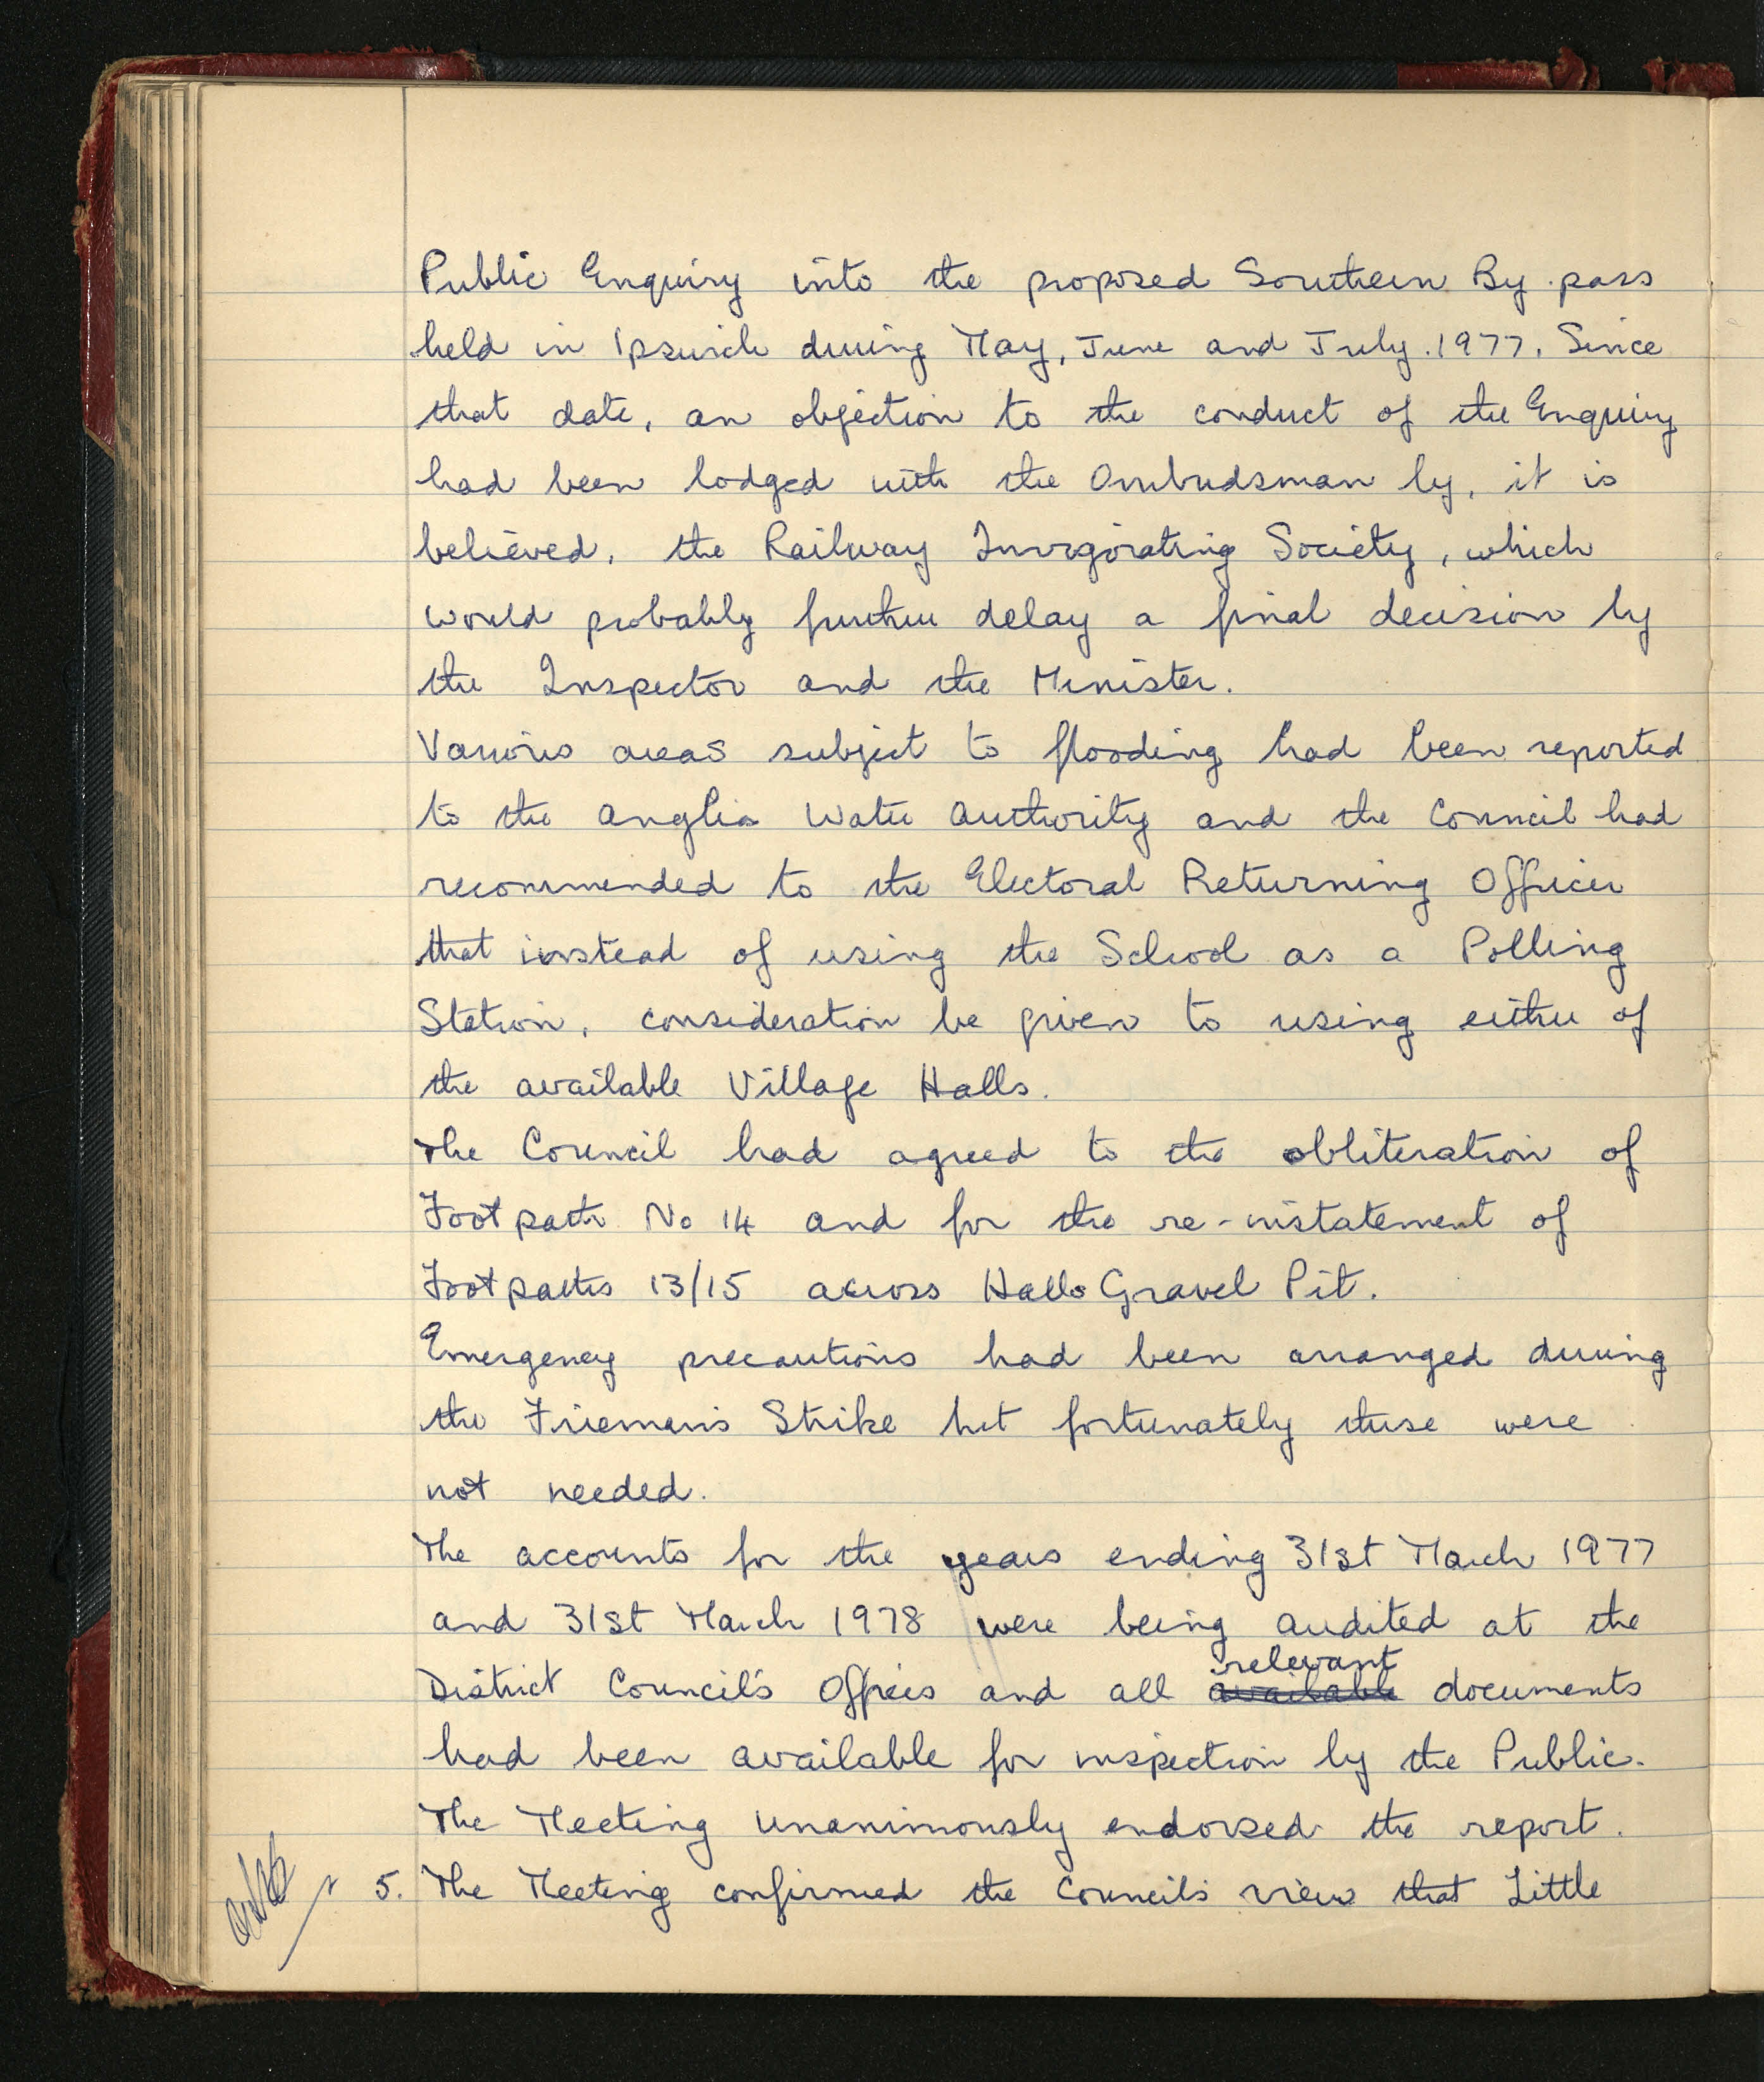 Public Enquiry into the proposed Southern By.pass
held in Ipswich during May, June and July.1977. Since
that date, an objection to the conduct of the Enquiry
had been lodged with the Ombudsman by, it is
believed, the Railway Invigorating Society, which
would probably further delay a final decision by
the Inspector and the Minister.
Various areas subject to flooding had been reported
to the Anglia Water Authority and the Council had
recommended to the Electoral Returning Officer
that instead of using the School as a Polling
Station, consideration be given to using either of
the available Village Halls.
The Council had agreed to the obliteration of
Footpath No 14 and for the re-instatement of
Footpaths 13/15 across Halls Gravel Pit.
Emergency precautions had been arranged during
the Firemen's Strike but fortunately these were
not needed.
The accounts for the years ending 31st March 1977
and 31st March 1978 were being audited at the
relevant
District Council's Offices and all available documents
had been available for inspection by the Public.
The Meeting unanimously endorsed the report.
5. The Meeting confirmed the Council's view that Little